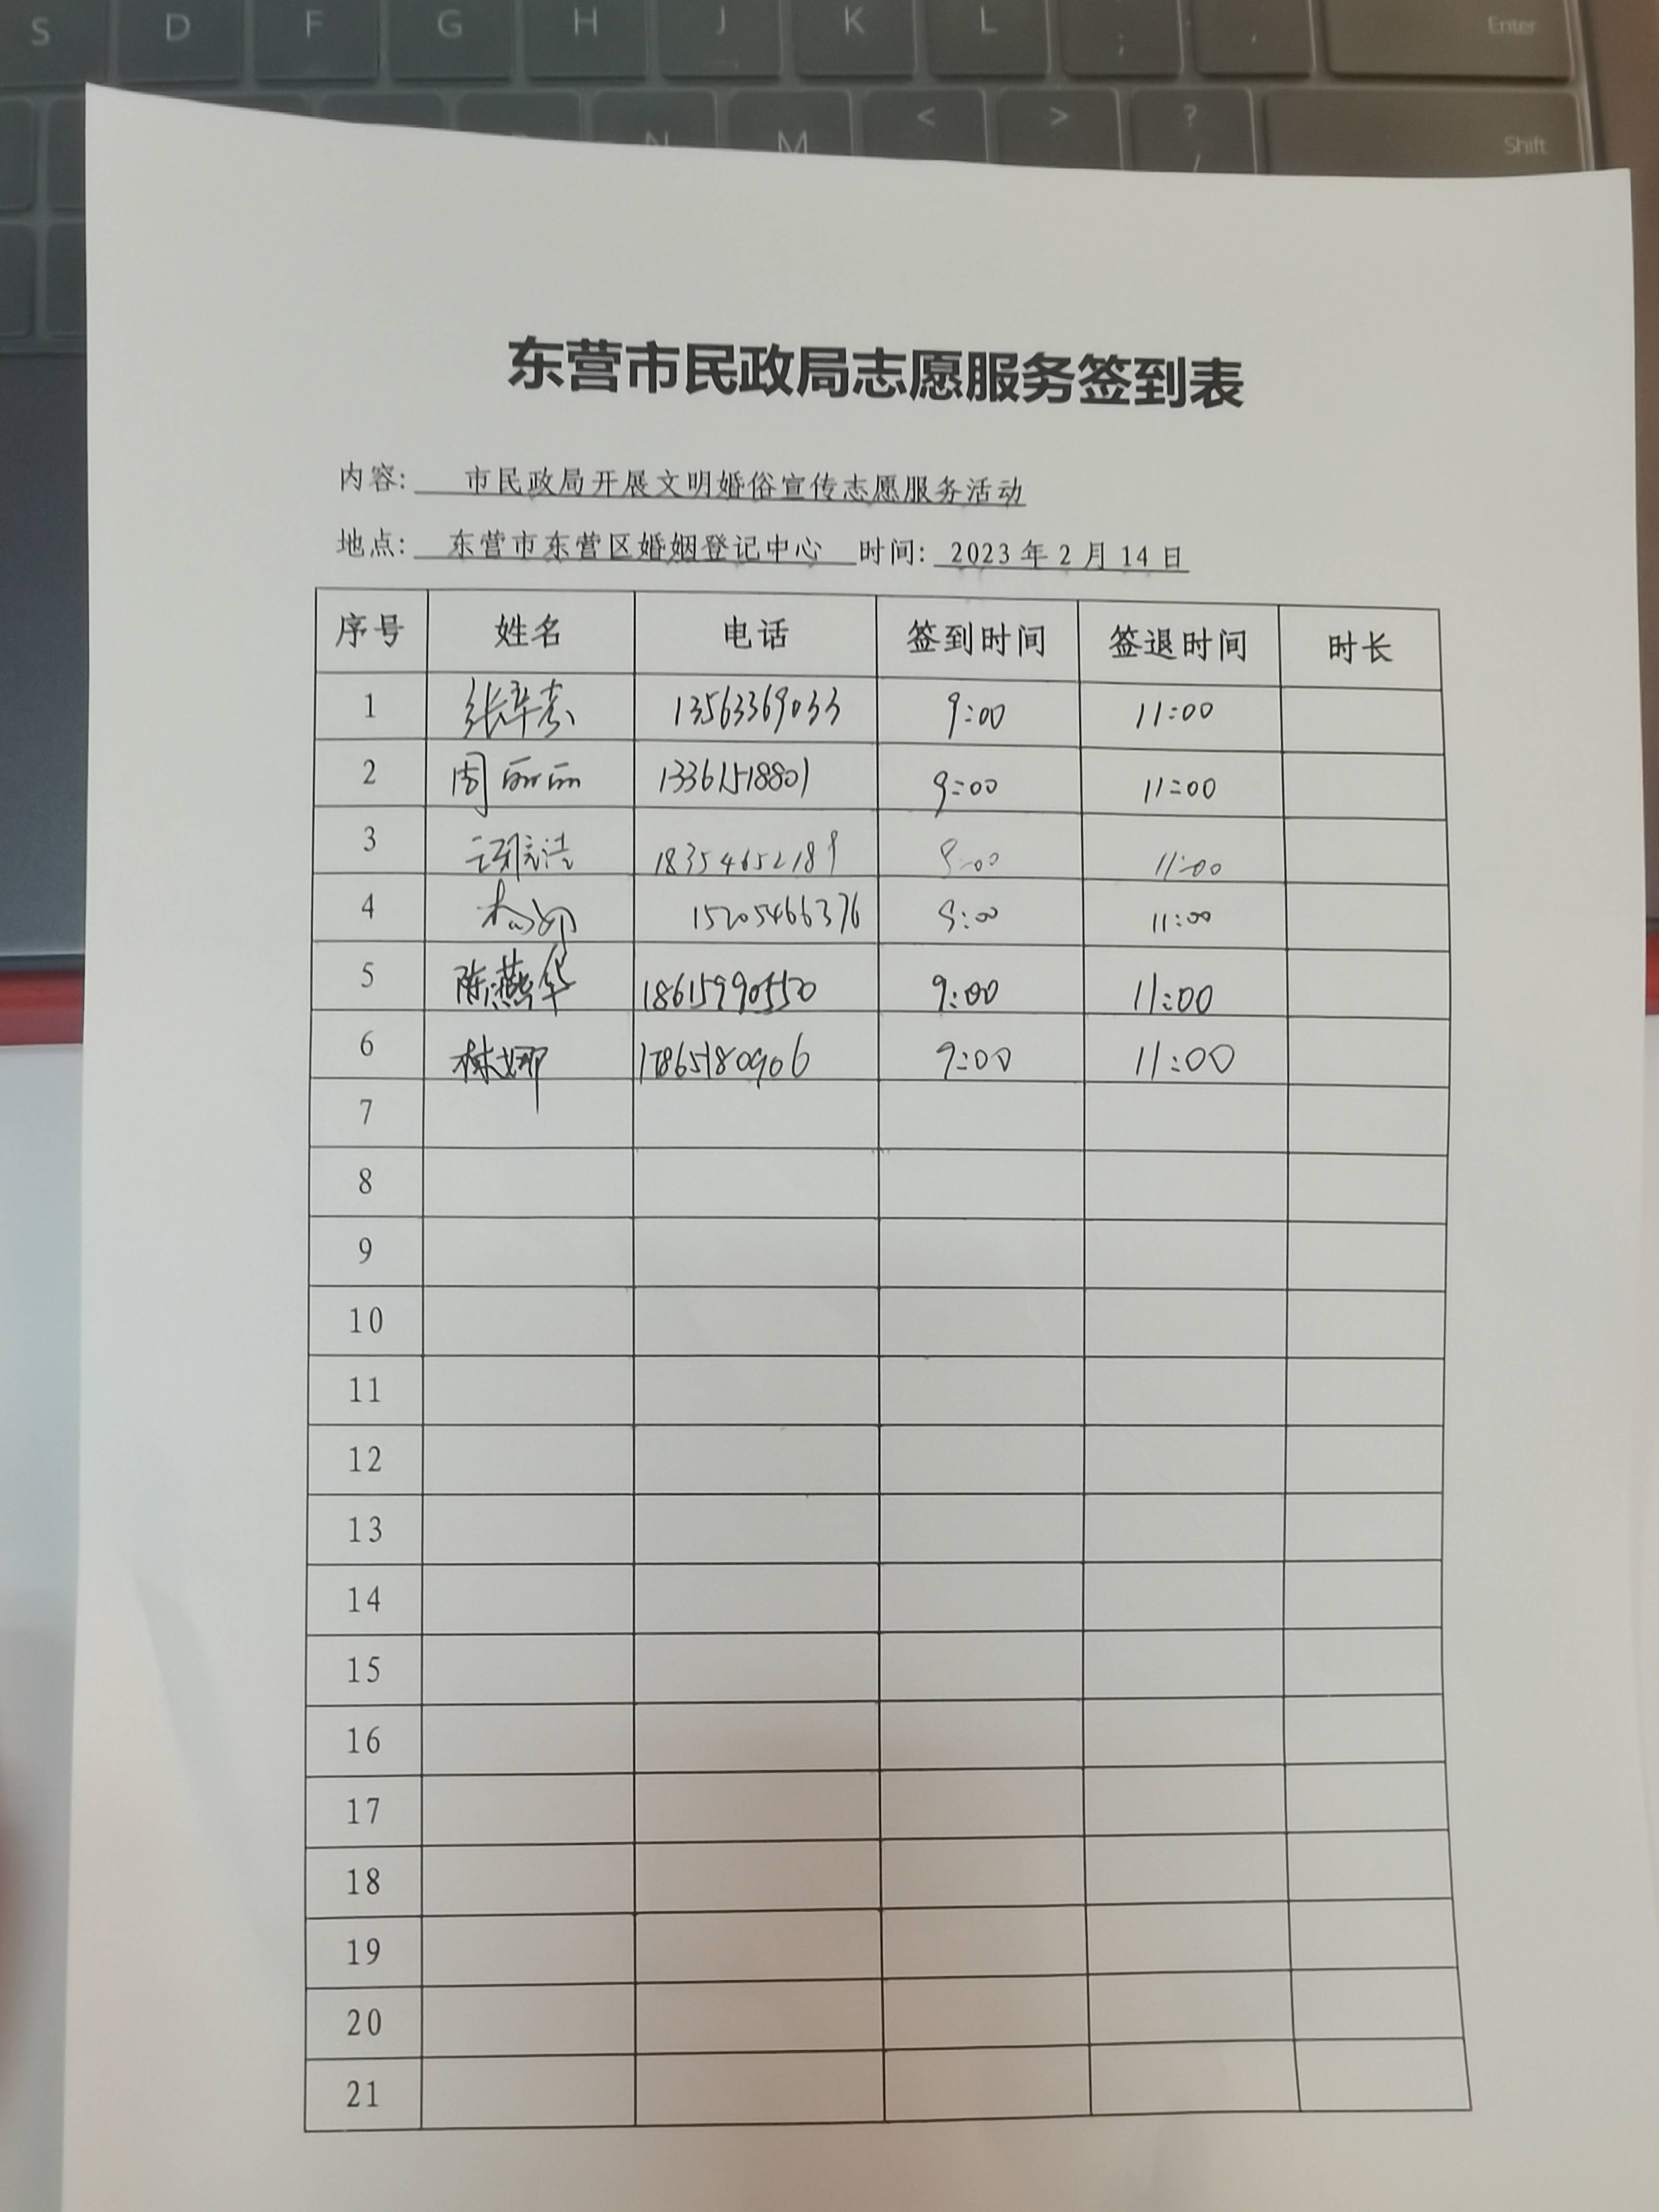 S D F G H J K L ; , Enter
N M < > ? / Shift
东营市民政局志愿服务签到表
内容: 市民政局开展文明婚俗宣传志愿服务活动
地点: 东营市东营区婚姻登记中心 时间: 2023年2月14日
序号 姓名 电话 签到时间 签退时间 时长
1 13563369033 9:00 11:00
2 周丽丽 13361518801 9:00 11:00
3 18354652189 9:00 11:00
4 杨娜 15205466376 9:00 11:00
5 陈燕华 18615990550 9:00 11:00
6 林娜 17865180906 9:00 11:00
7
8
9
10
11
12
13
14
15
16
17
18
19
20
21